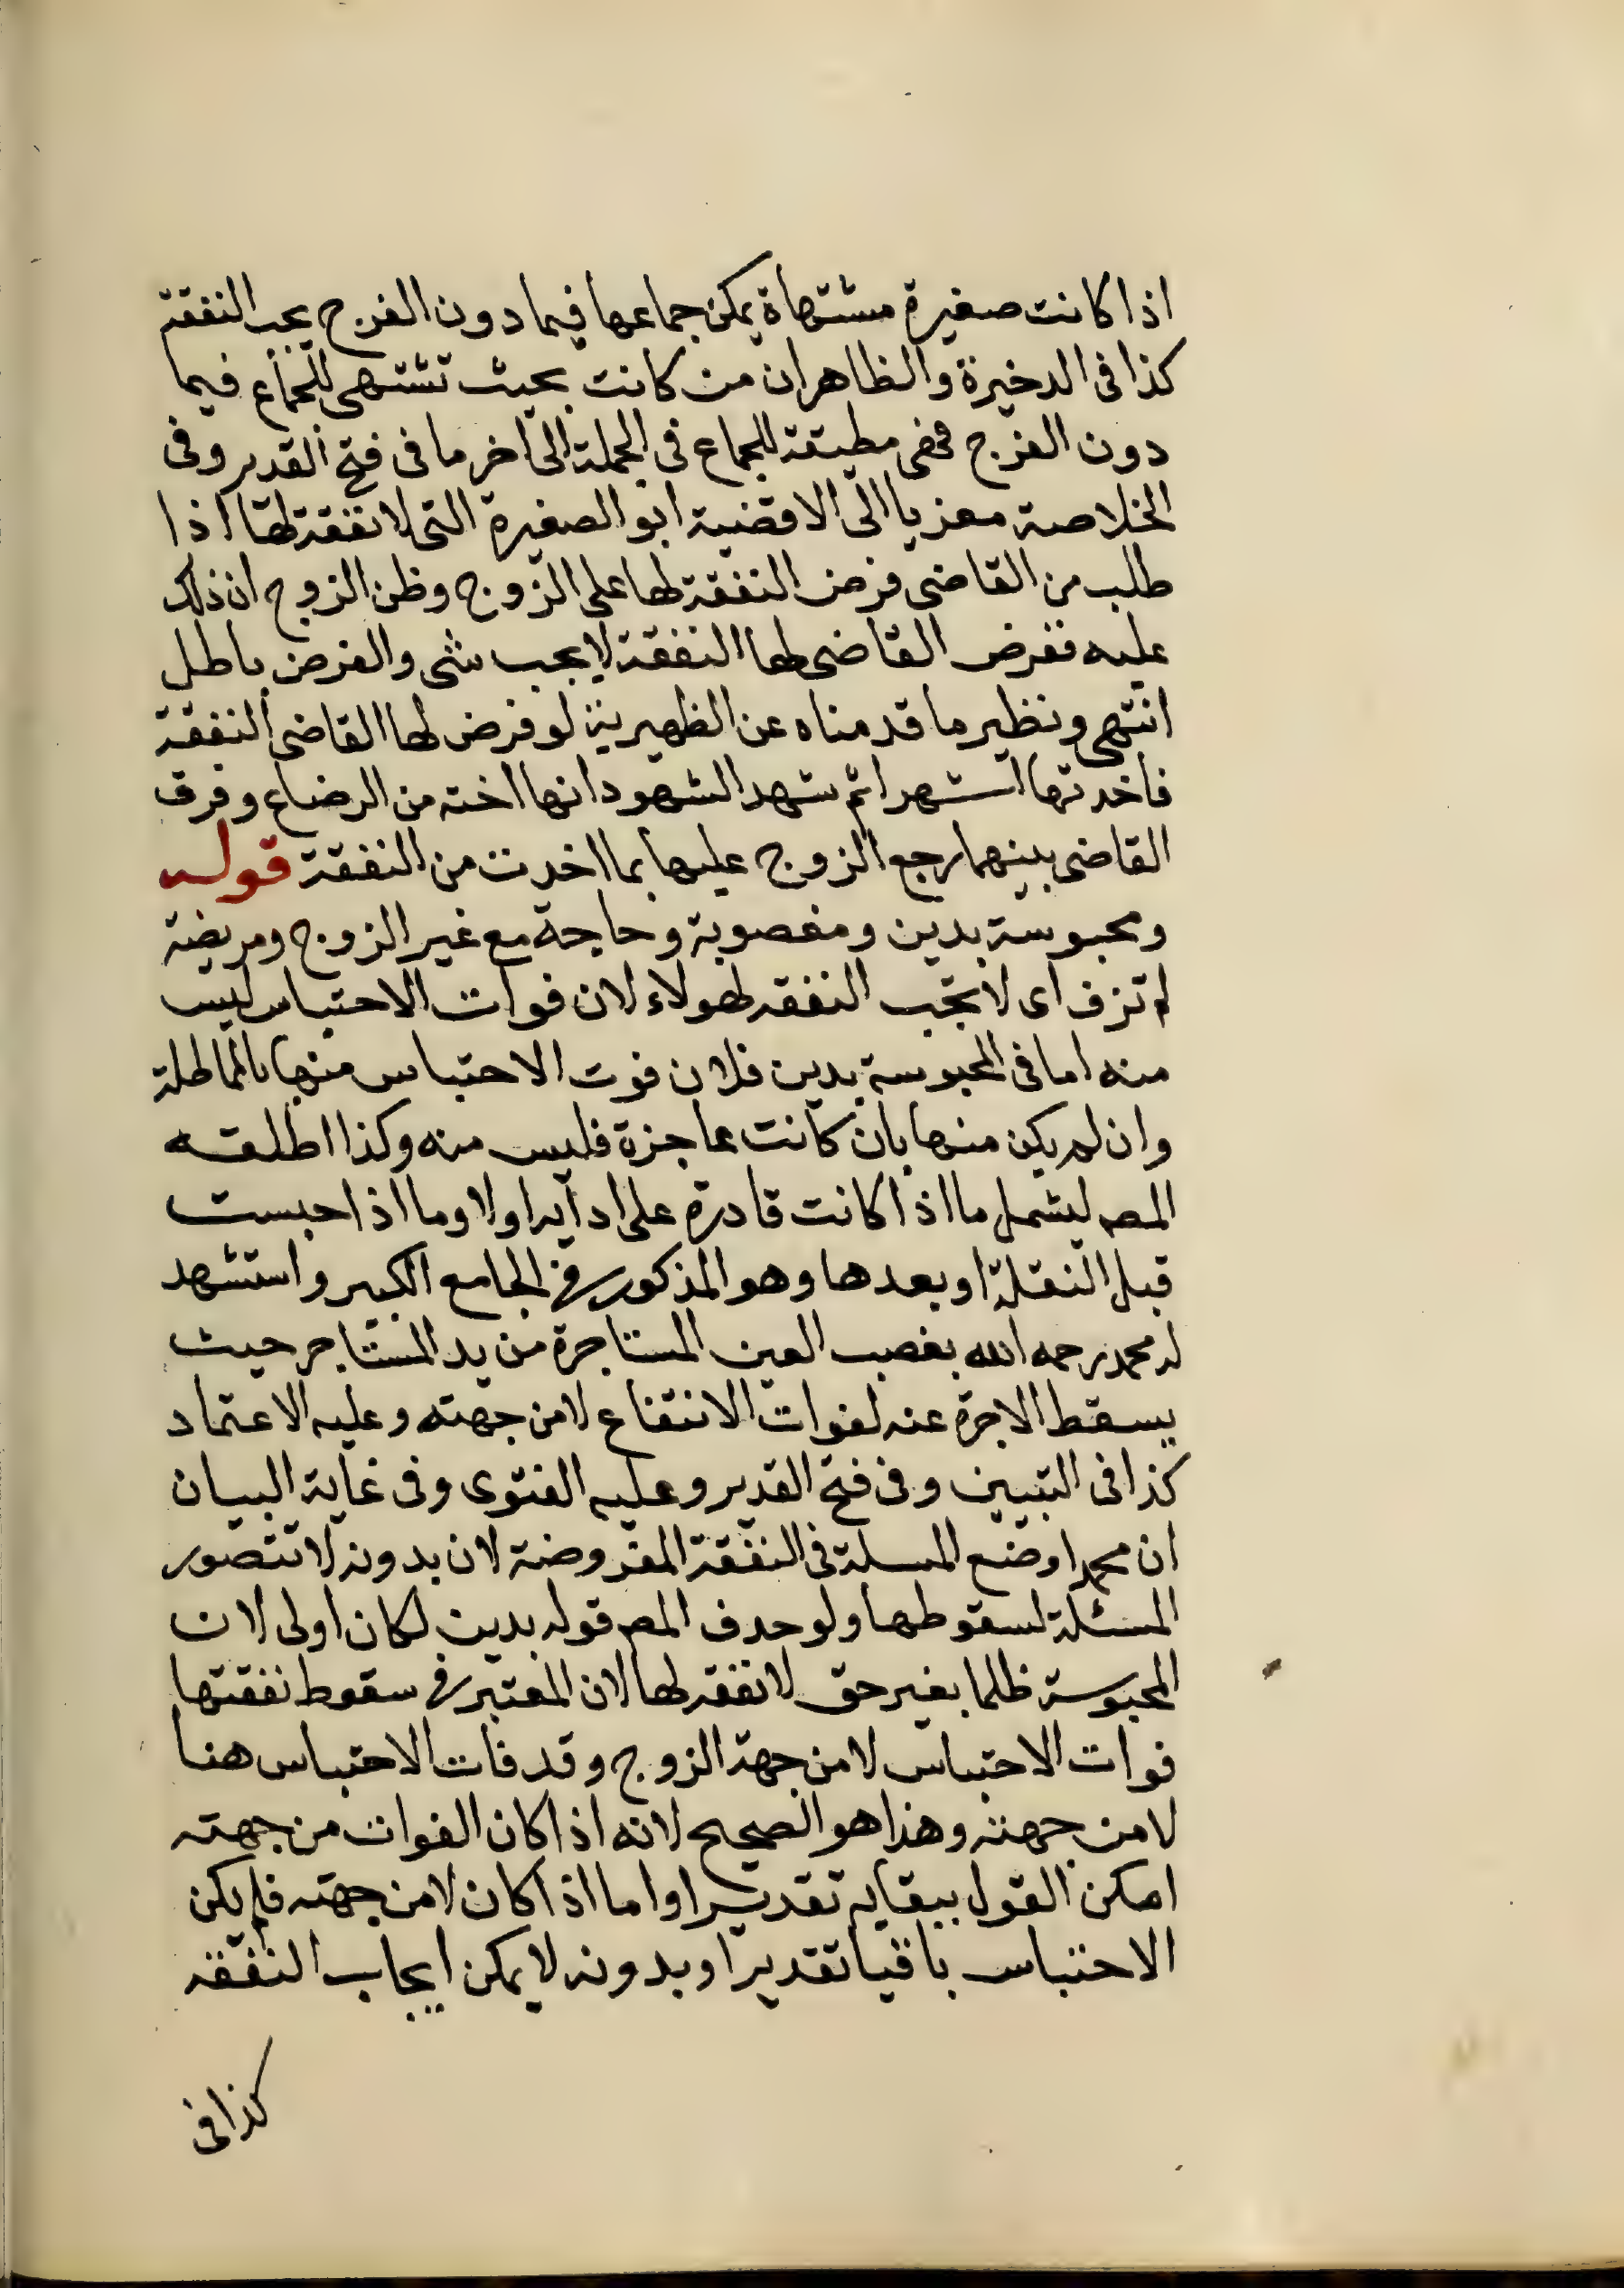 اذا كانت صغيرة مشتهاة يمكن جماعها فيما دون الفرج يجب النفقة
كذا فى الدخيرة والظاهر ان من كانت بحيث تشتهى للجماع فيما
دون الفرج فهى مطيقة للجماع فى الجملة الى اخر ما فى فتح القدير وفى
الخلاصة معزيا الى الاقضية ابو الصغيرة التى لا نفقة لها اذا
طلب من القاضى فرض النفقة لها على الزوج وظن الزوج ان ذلك
عليه ففرض القاضى لها النفقة لا يجب شى والفرض باطل
انتهى ونظير ما قدمناه عن الظهيرية لو فرض لها القاضى النفقة
فاخدتها اشهرا ثم شهد الشهود انها اخته من الرضاع وفرق
القاضى بينهما رجع الزوج عليها بما اخدت من النفقة قوله
ومحبوسة بدين ومغصوبة وحاجة مع غير الزوج ومريضة
لم تزف اى لا تجب النفقه لهولاء لان فوات الاحتباس ليس
منه اما فى المحبوسة بدين فلان فوت الاحتباس منها بالمماطلة
وان لم يكن منها بان كانت عاجزة فليس منه وكذا اطلقه
المصـ ليشمل ما اذا كانت قادرة على ادآيه اولا وما اذا حبست
قبل النقلة او بعدها وهو المذكور فى الجامع الكبير واستشهد
له محمد رحمه الله بغصب العين المستاجرة من يد المستاجر حيث
يسقط الاجرة عنه لفوات الانتفاع لا من جهته وعليه الاعتماد
كذا فى التبيين وفى فتح القدير وعليه الفتوى وفى غاية البيان
ان محمدا وضع المسلة فى النفقة المفروضة لان بدونه لا تتصور
المسئلة لسقوطها ولو حدف المصـ قوله بدين لكان اولى لان
المحبوسة ظلما بغير حق لا نفقه لها لان المعتبر فى سقوط نفقتها
فوات الاحتباس لا من جهة الزوج وقد فات الاحتباس هنا
لا من جهته وهذا هو الصحيح لانه اذا كان الفوات من جهته
امكن القول ببقايه تقديرا واما اذا كان لا من جهته فلم يكن
الاحتباس باقيا تقديرا وبدونه لا يمكن ايجاب النفقه
كذا فى